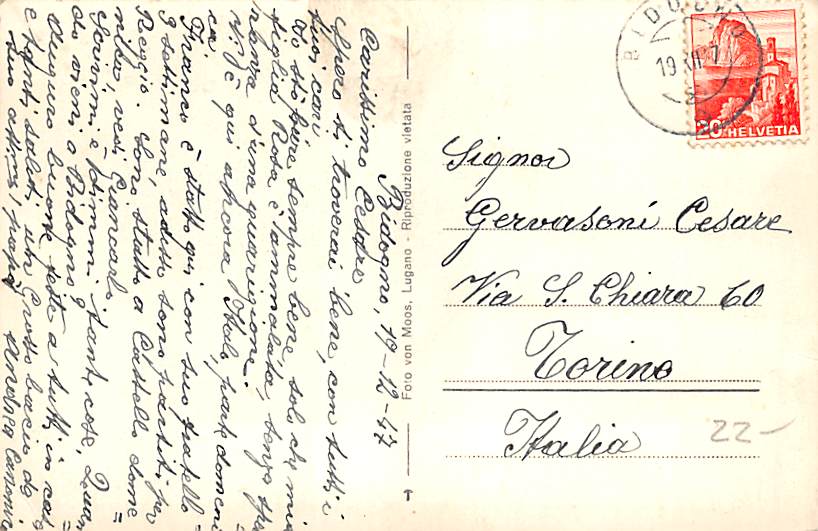 Bidogno, 19-12-47
Carissimo Cesare
Spero ti troverai bene, con tutti i
tuoi cari.
Io sto pure sempre bene, solo che mia
figlia Rosa è ammalata, senza spe=
ranza d'una guarigione.
Vi è qui ancora Italo, parte domeni=
ca.
Franco è stato qui con suo fratello
9 settimane, adesso sono partiti per
Reggio. Sono stato a Castello dome=
vedi Giancarlo
Scrivimi e dimmi tante cose, Quan=
do vieni a Bidogno?
Auguro buone feste a tutti in casa
e tanti saluti, un Grosso bacio da
tuo
Foto von Moos, Lugano - Riproduzione vietata
T
BIDOGNO
19 XII 47
20
HELVETIA
Signor
Gervasoni Cesare
Via S. Chiara 60
Torino
Italia
22-